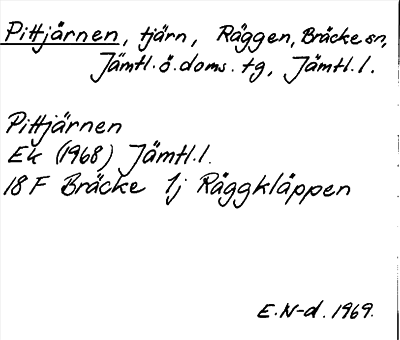 Pittjärnen, tjärn, Räggen, Bräcke sn,
Jämtl.ö.doms.tg, Jämtl.l.
Pittjärnen
Ek (1968) Jämtl.l.
18 F Bräcke 1j Räggkläppen
E.N-d. 1969.